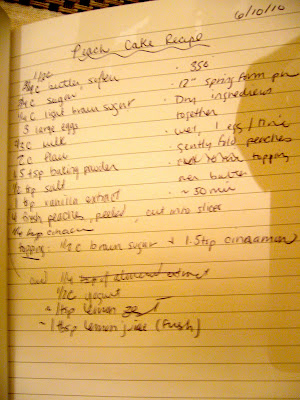 6/10/10
Peach Cake Recipe
1/2c
c butter, soften · 350
3/4 c sugar · 12" spring form pan
1/4 c light brown sugar · Dry ingredients
3 large eggs together
c milk · wet, 1 egg / time
2 c flour · gently fold peaches
1.5 tsp baking powder topping
tsp salt over batter
1 tsp vanilla extract · ~ 50 min
4 fresh peaches, peeled, cut into slices
1/4 tsp
topping: 1/3 c brown sugar + 1.5 tsp cinnamon
add 1/4 tsp of almond extract
1/2c yogurt
~ 1 tsp lemon
~ 1 tsp lemon juice (fresh)